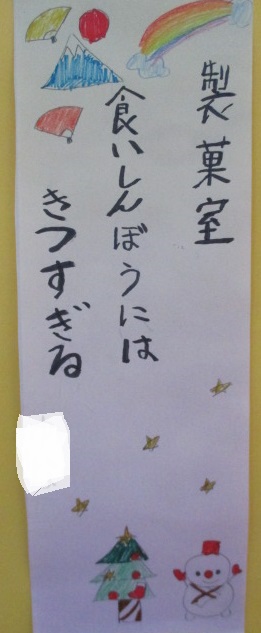 製菓室
食いしんぼうには
きつすぎる